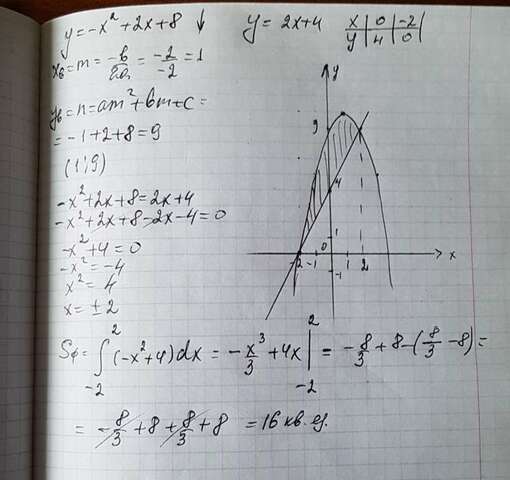 y = -x² + 2x + 8 ↓
y = 2x+4
x | 0 | -2
y | 4 | 0
xв = m = -b/2a = -2/-2 = 1
yв = n = am² + bm + c =
= -1 + 2 + 8 = 9
(1; 9)
-x² + 2x + 8 = 2x + 4
-x² + 2x + 8 - 2x - 4 = 0
-x² + 4 = 0
-x² = -4
x² = 4
x = ± 2
y
9
4
1
-2 -1 0 1 2 x
-1
Sф = ∫ from -2 to 2 (-x² + 4) dx = -x³/3 + 4x | from -2 to 2 = -8/3 + 8 - (8/3 - 8) =
= -8/3 + 8 + 8/3 + 8 = 16 кв. ед.